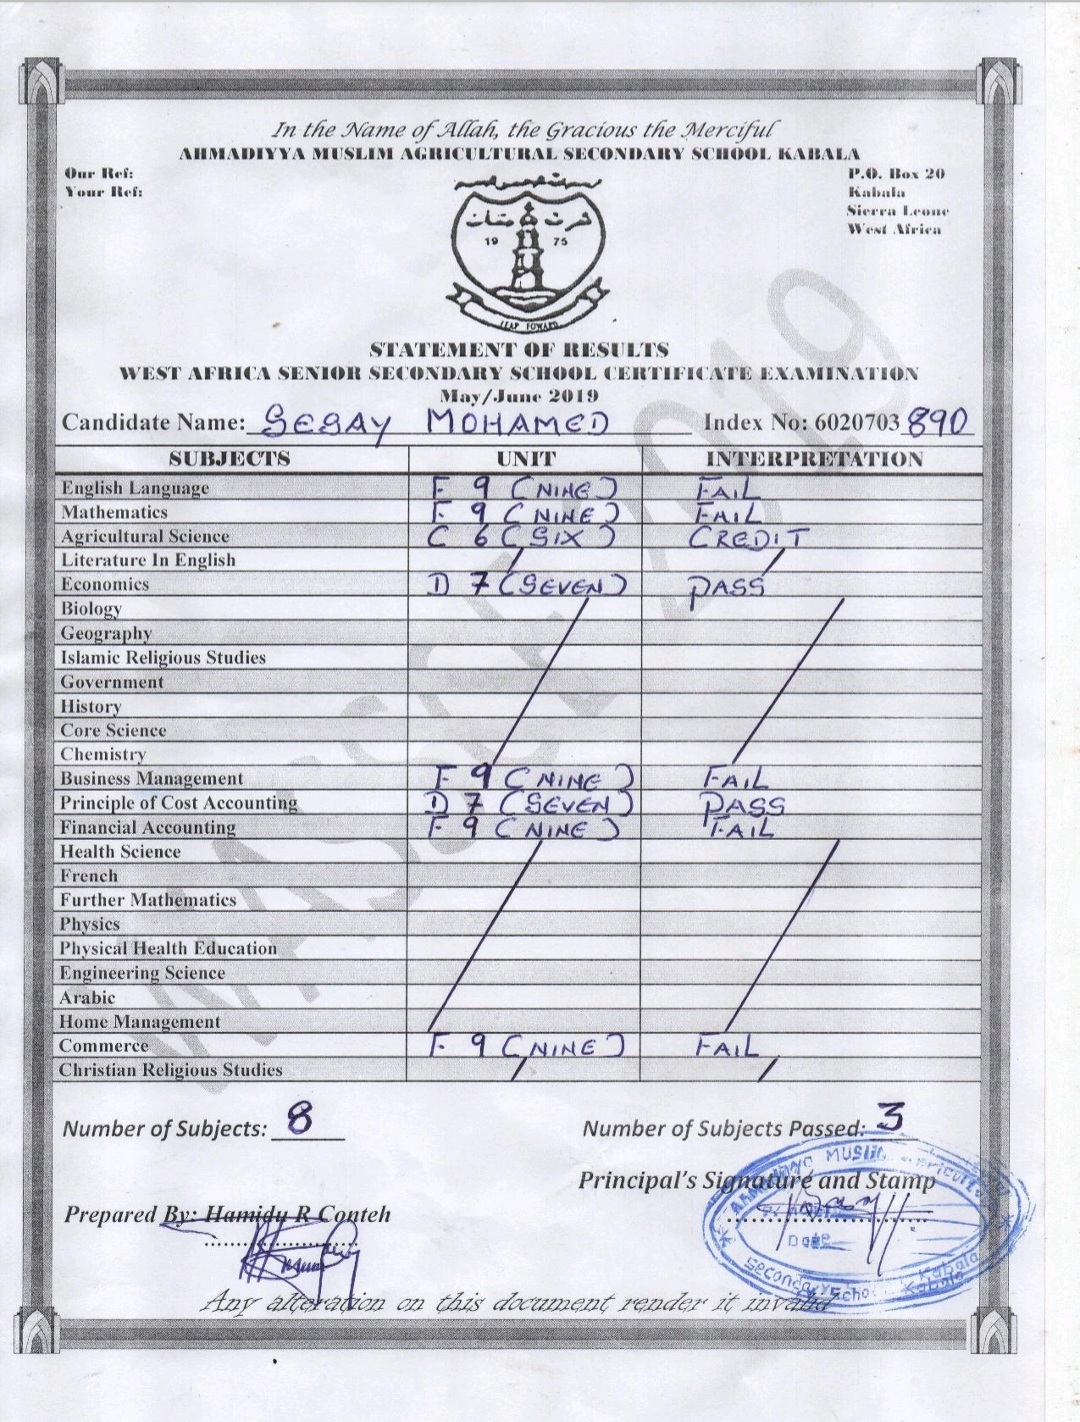 In the Name of Allah, the Gracious the Merciful
AHMADIYYA MUSLIM AGRICULTURAL SECONDARY SCHOOL KABALA
Our Ref:
Your Ref:
P.O. Box 20
Kabala
Sierra Leone
West Africa
19 75
LEAP FOWARD
STATEMENT OF RESULTS
WEST AFRICA SENIOR SECONDARY SCHOOL CERTIFICATE EXAMINATION
May/June 2019
Candidate Name: SESAY MOHAMED Index No: 6020703 890
SUBJECTS UNIT INTERPRETATION
English Language F 9 (NINE) FAIL
Mathematics F 9 (NINE) FAIL
Agricultural Science C 6 (SIX) CREDIT
Literature In English /  /
Economics D 7 (SEVEN) PASS
Biology
Geography
Islamic Religious Studies
Government
History
Core Science
Chemistry
Business Management F 9 (NINE) FAIL
Principle of Cost Accounting D 7 (SEVEN) PASS
Financial Accounting F 9 (NINE) FAIL
Health Science
French
Further Mathematics
Physics
Physical Health Education
Engineering Science
Arabic
Home Management
Commerce F 9 (NINE) FAIL
Christian Religious Studies /  /
WASSCE 2019
Number of Subjects: 8 Number of Subjects Passed: 3
Principal's Signature and Stamp
Prepared By: Hamidu R Conteh
Ahmadiyya Muslim Agricultural
Date
Secondary School Kabala
Kabala
Any alteration on this document render it invalid